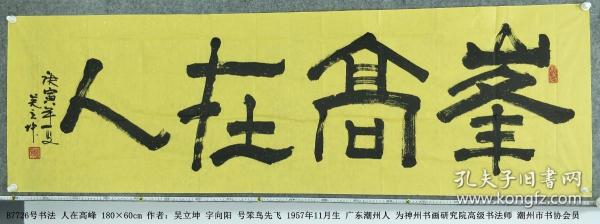 人在高峯
庚寅年夏
吴立坤
孔夫子旧书网
B7726号书法 人在高峰 180×60cm 作者：吴立坤 字向阳 号笨鸟先飞 1957年11月生 广东潮州人 为神州书画研究院高级书法师 潮州市书协会员